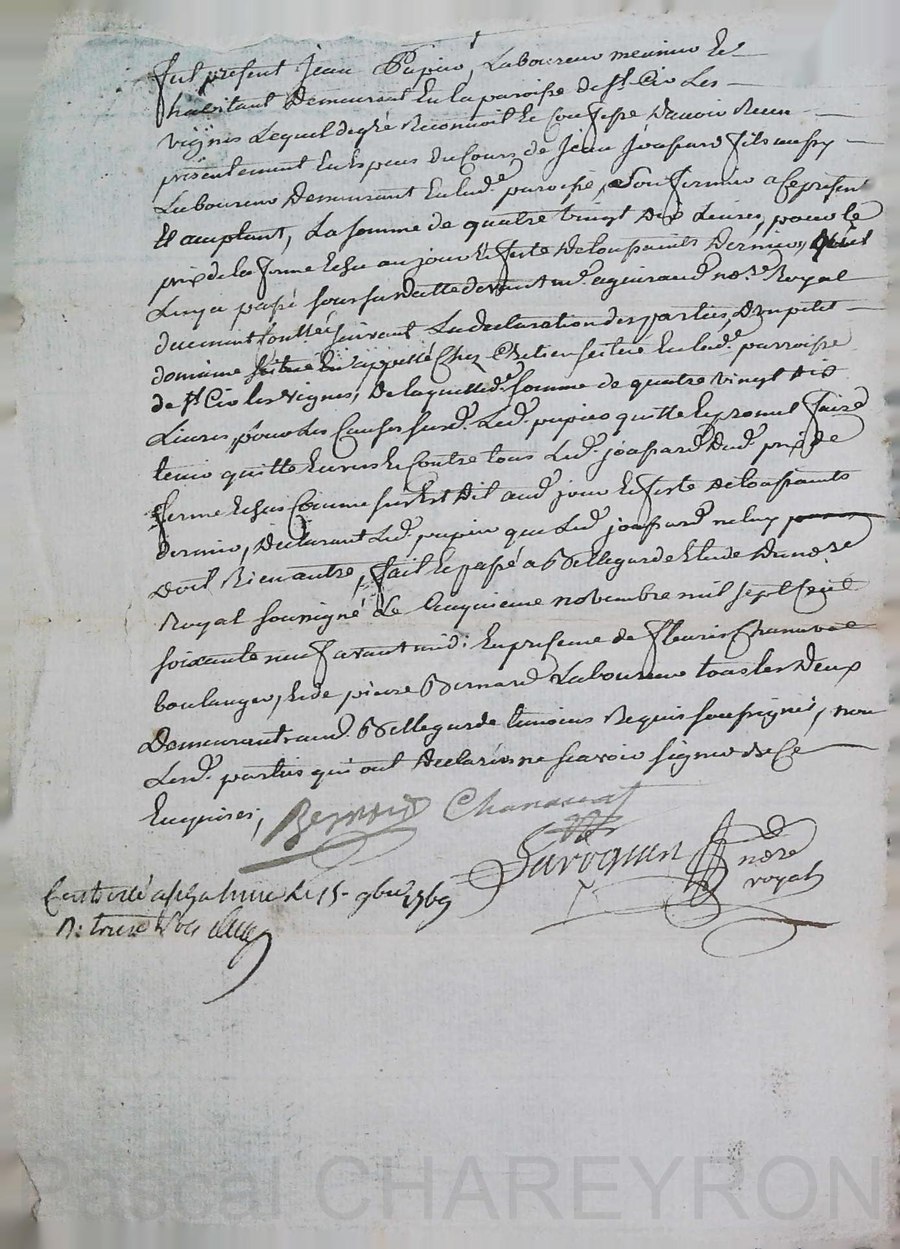 fut present Jean Pupier Laboureur meunier et
habitant Demeurant En la paroisse de st Cir Les
vignes Lequel de gré Reconnoit Et Confesse Davoir Receu
présentement En Especes Du Cours de Jean joassard fils aussy
Laboureur Demeurant En lade paroisse, son fermier a Ce present
Et acceptant, La somme de quatre vingt Dix Livres, pour le
prix de la ferme Echu au jour Et feste De toussaints Dernier,
Luy a passé sous sa datte devant me nore Royal
duement suivant La declaration des parties, D'un petit
domaine appellé Chez Chetien scitué En lade parroisse
de st Cir les vignes, De laquelle de somme de quatre vingt dix
Livres, pour Les Causes susd. Led. pupier quitte Et promet faire
tenir quitte Envers Et Contre tous Led. joassard Dud. prix de
ferme Echu Comme sus Est Dit aud. jour Et feste De toussaints
dernier, Declarant Led. pupier que Led. joassard ne luy
doit Rien autre, fait Et passé a Bellegarde Etude Du nore
Royal soussigné Le Cinquieme novembre mil sept Cent
soixante neuf avant midi: En presence de fleurie Chanavat
boulanger, Et de pierre Bernard Laboureur tous les Deux
Demeurant aud. Bellegarde temoins Requis soussignés, non
Lesd. parties qui ont Declarées ne scavoir signer de Ce
Enquises,
Bernard Chanavat
nore
royal
Controllé a le 15 9bre 1769
R: treize sols
Pascal CHAREYRON